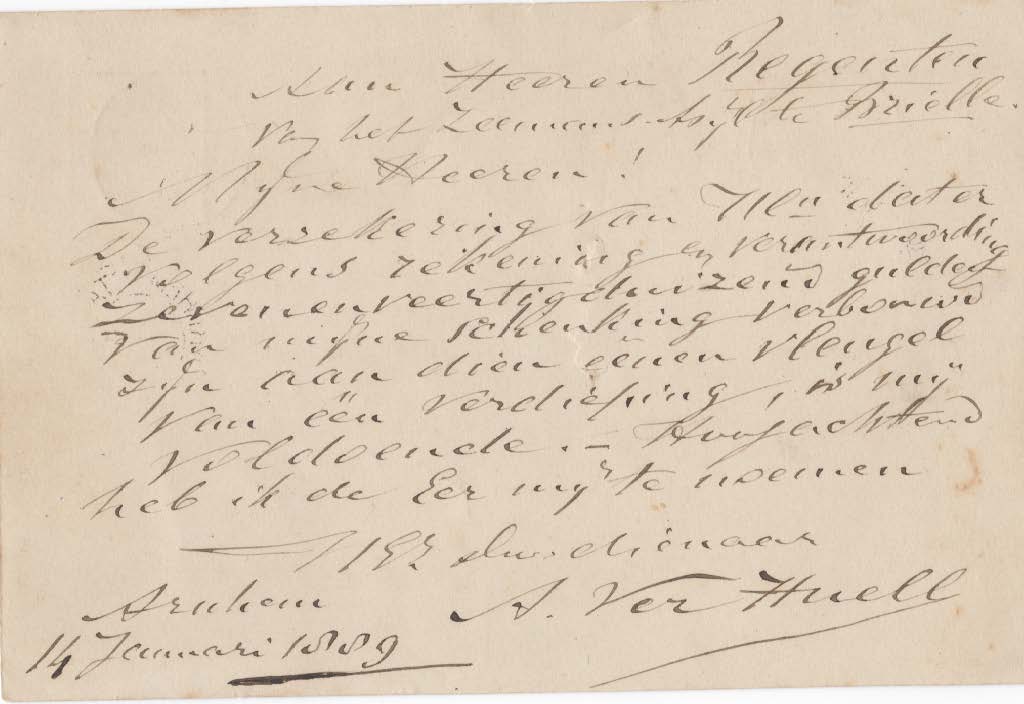 Aan Heeren Regenten
van het Zeemans-Asyl te Brielle.
Mijne Heeren!
De verzekering van UEn dat er
volgens rekening en verantwoording
zevenenveertigduizend gulden
van mijne schenking verbouwd
zijn aan dien éénen vleugel
van één verdieping, is mij
voldoende. – Hoogachtend
heb ik de Eer mij te noemen
Dw. dienaar
A. Ver Huell
Arnhem
14 Januari 1889